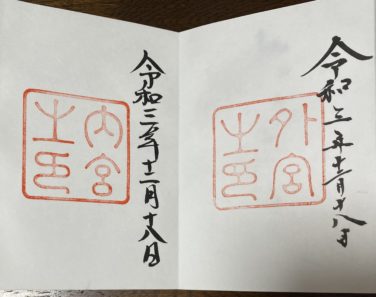 令和三年十二月十八日
外宮
之印
令和三年十二月十八日
内宮
之印